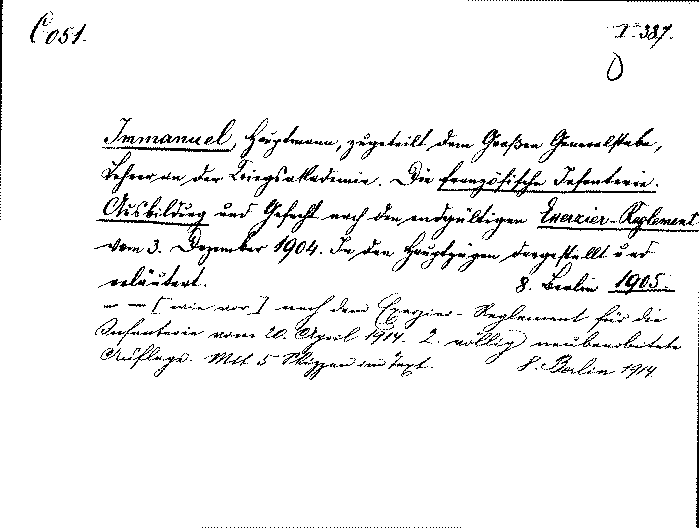 C 051.
I. 387.
Immanuel, Hauptmann, zugeteilt dem Großen Generalstabe,
Lehrer an der Kriegsakademie. Die französische Infanterie.
Ausbildung und Gefecht nach dem endgültigen Exerzier-Reglement
vom 3. Dezember 1904. In den Hauptzügen dargestellt und
erläutert. 8. Berlin 1905.
— — [wie vor] nach dem Exerzier-Reglement für die
Infanterie vom 20. April 1914. 2. völlig neubearbeitete
Auflage. Mit 5 Skizzen im Text. 8. Berlin 1914.